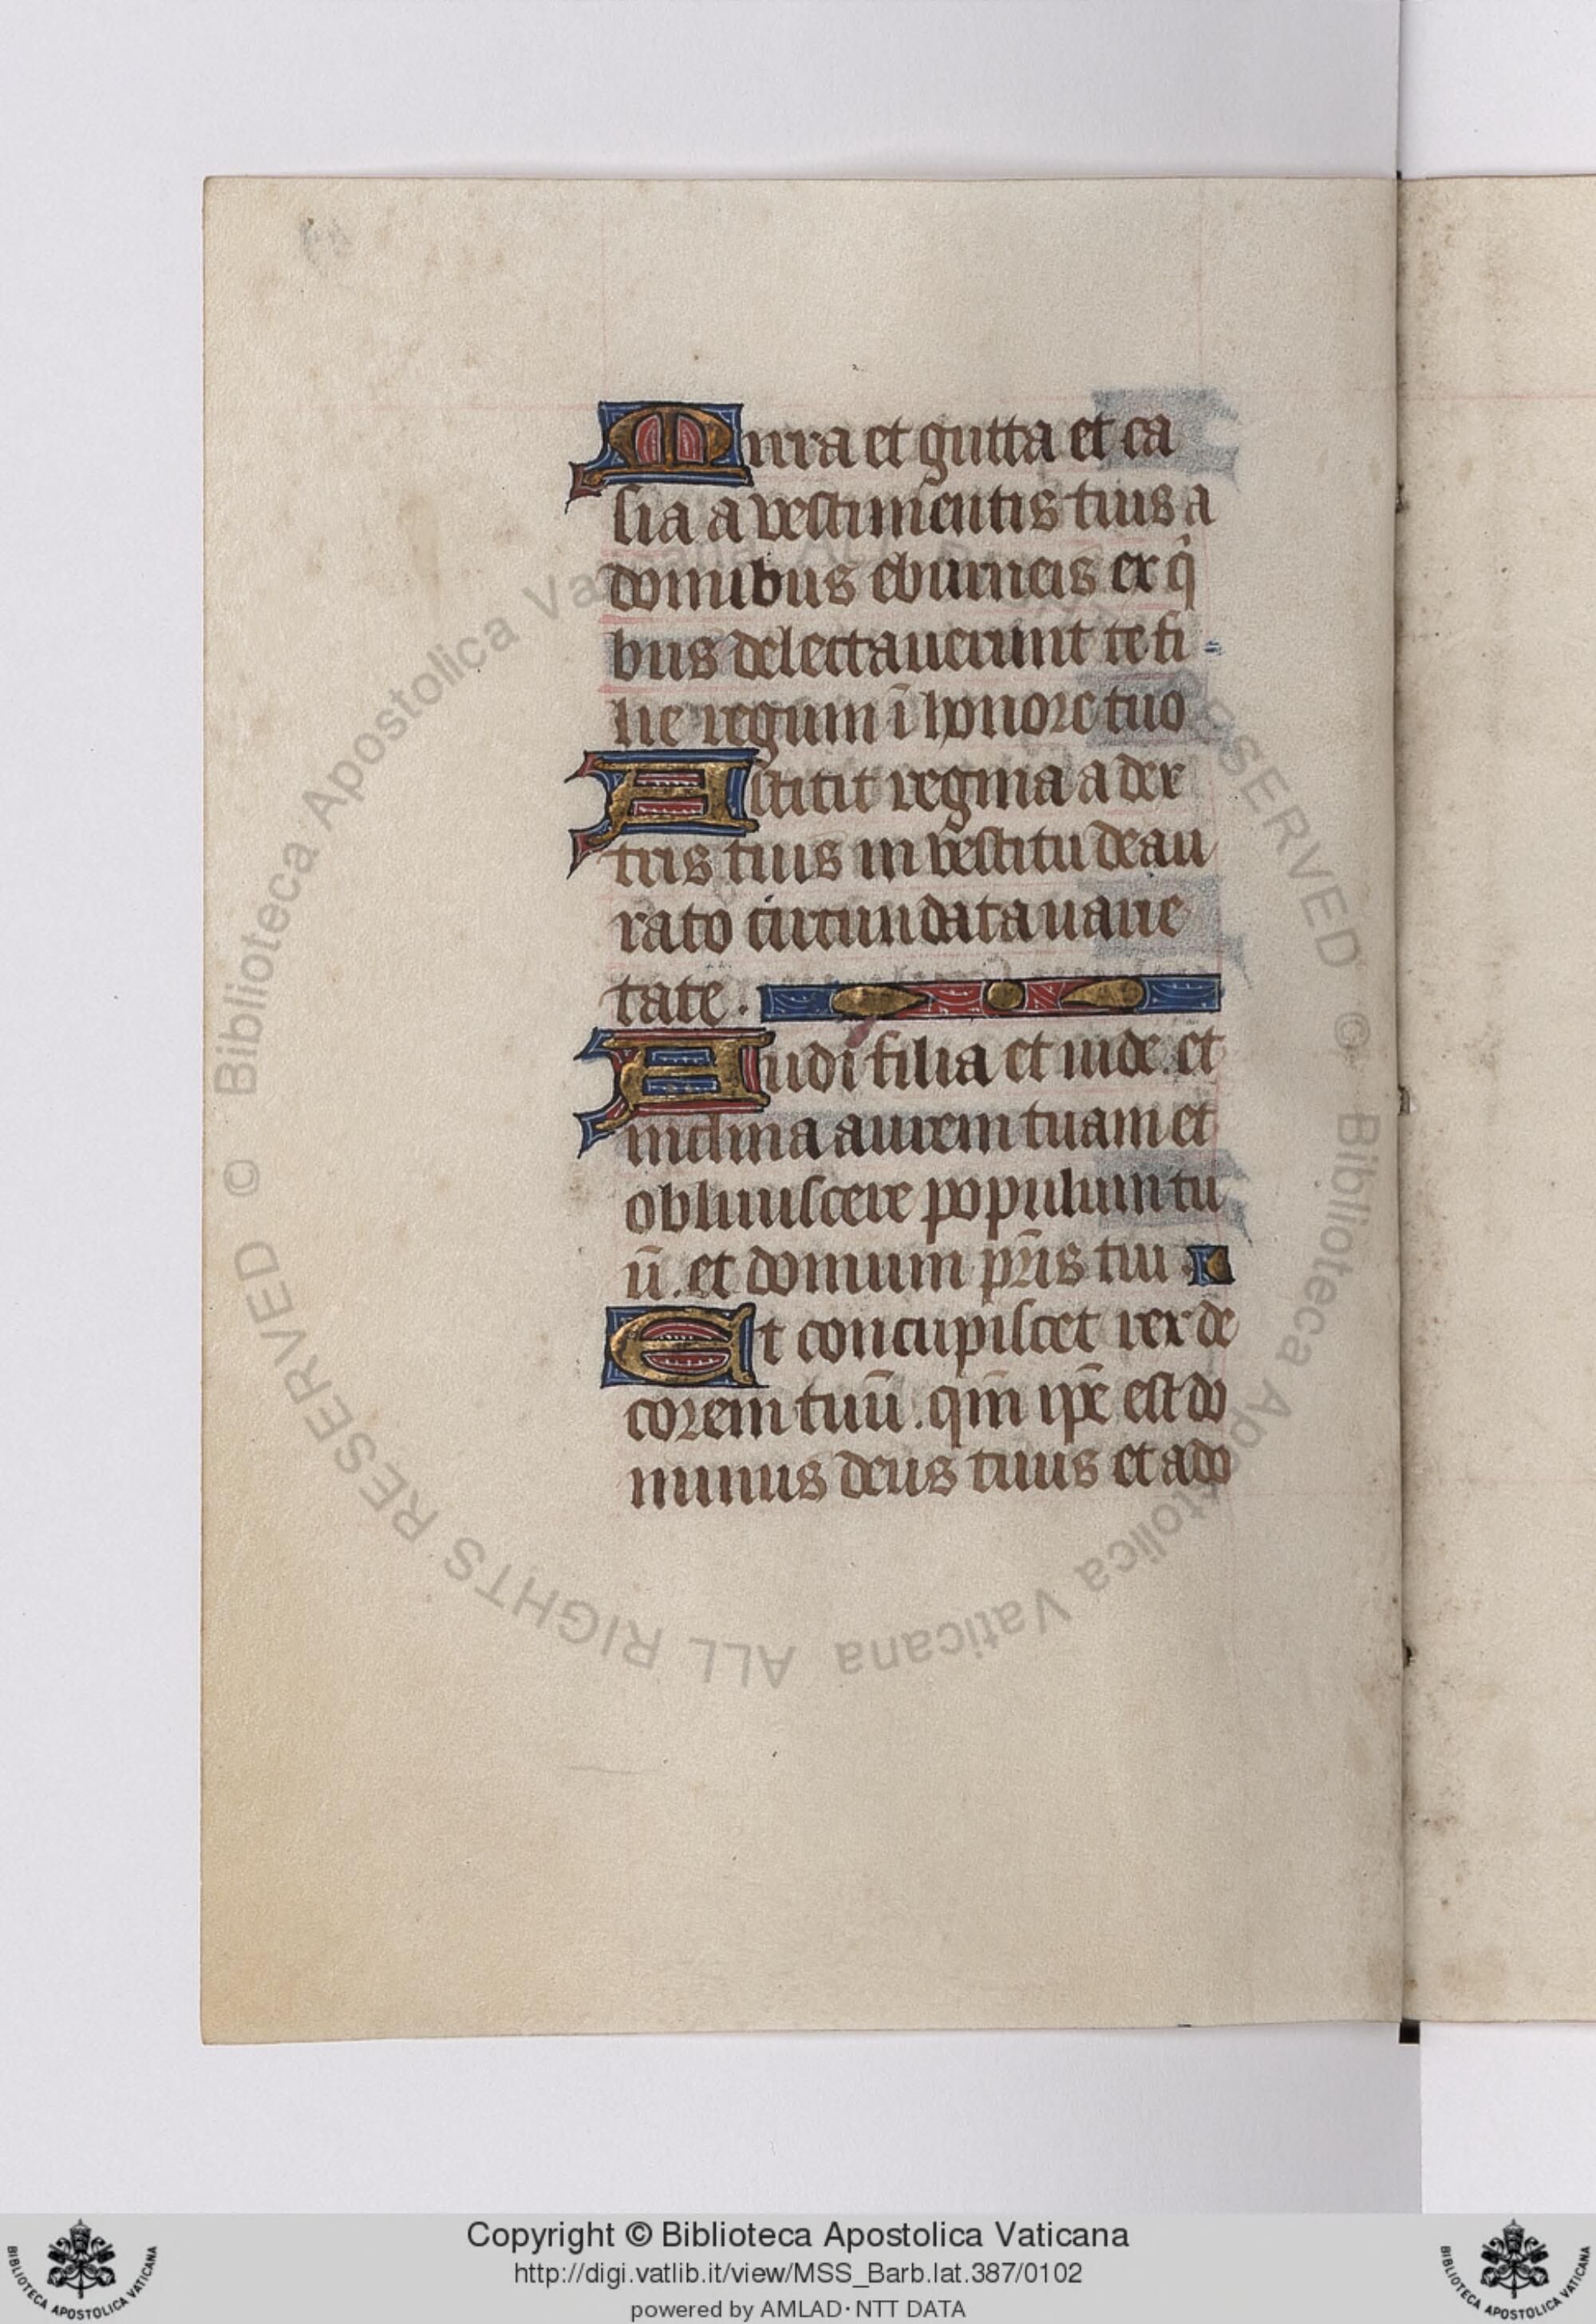 Mirra et gutta et ca
sia a vestimentis tuis a
domibus eburneis ex qͥ
bus delectauerunt te fi
lie regum ī honore tuo
Astitit regina a dex
tris tuis in vestitu deau
rato circumdata uarie
tate.
Audi filia et uide. et
inclina aurem tuam et
obliuiscere populum tu
ū. et domum pr̄is tui.
Et concupiscet rex de
corem tuū. qm̄ ip̄e est do
minus deus tuus et ado
© Biblioteca Apostolica Vaticana ALL RIGHTS RESERVED © Biblioteca Apostolica Vaticana ALL RIGHTS RESERVED
Copyright © Biblioteca Apostolica Vaticana
http://digi.vatlib.it/view/MSS_Barb.lat.387/0102
powered by AMLAD·NTT DATA
BIBLIOTECA APOSTOLICA VATICANA
BIBLIOTECA APOSTOLICA VATICANA